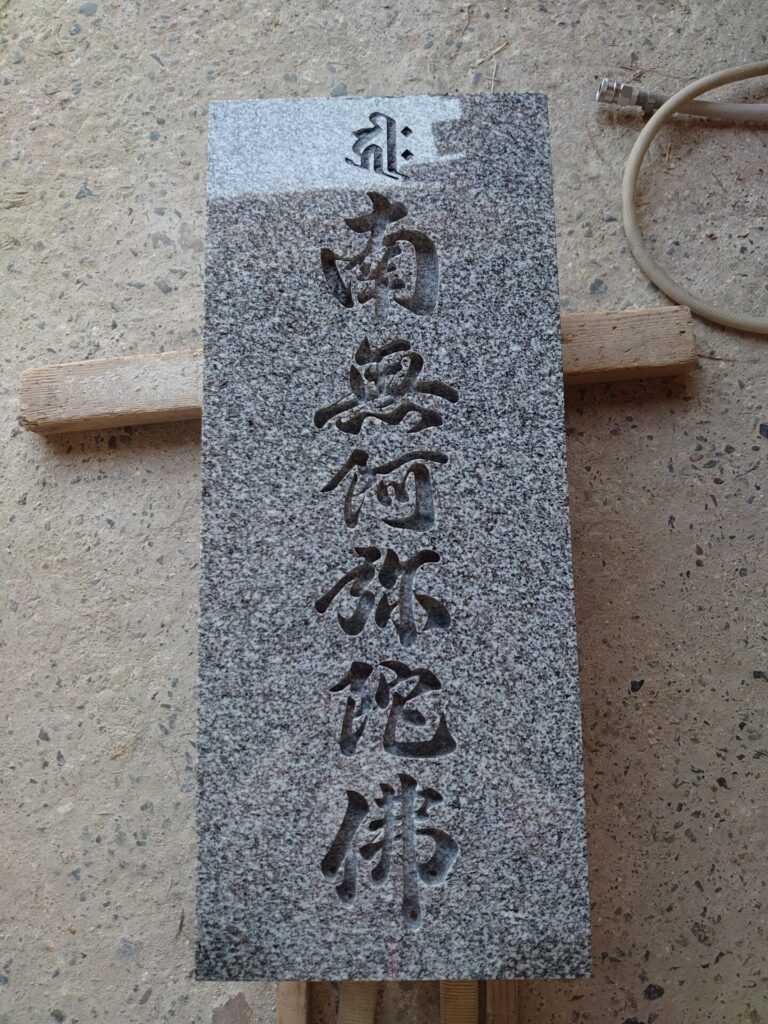 ह्रीः
南無阿弥陀佛